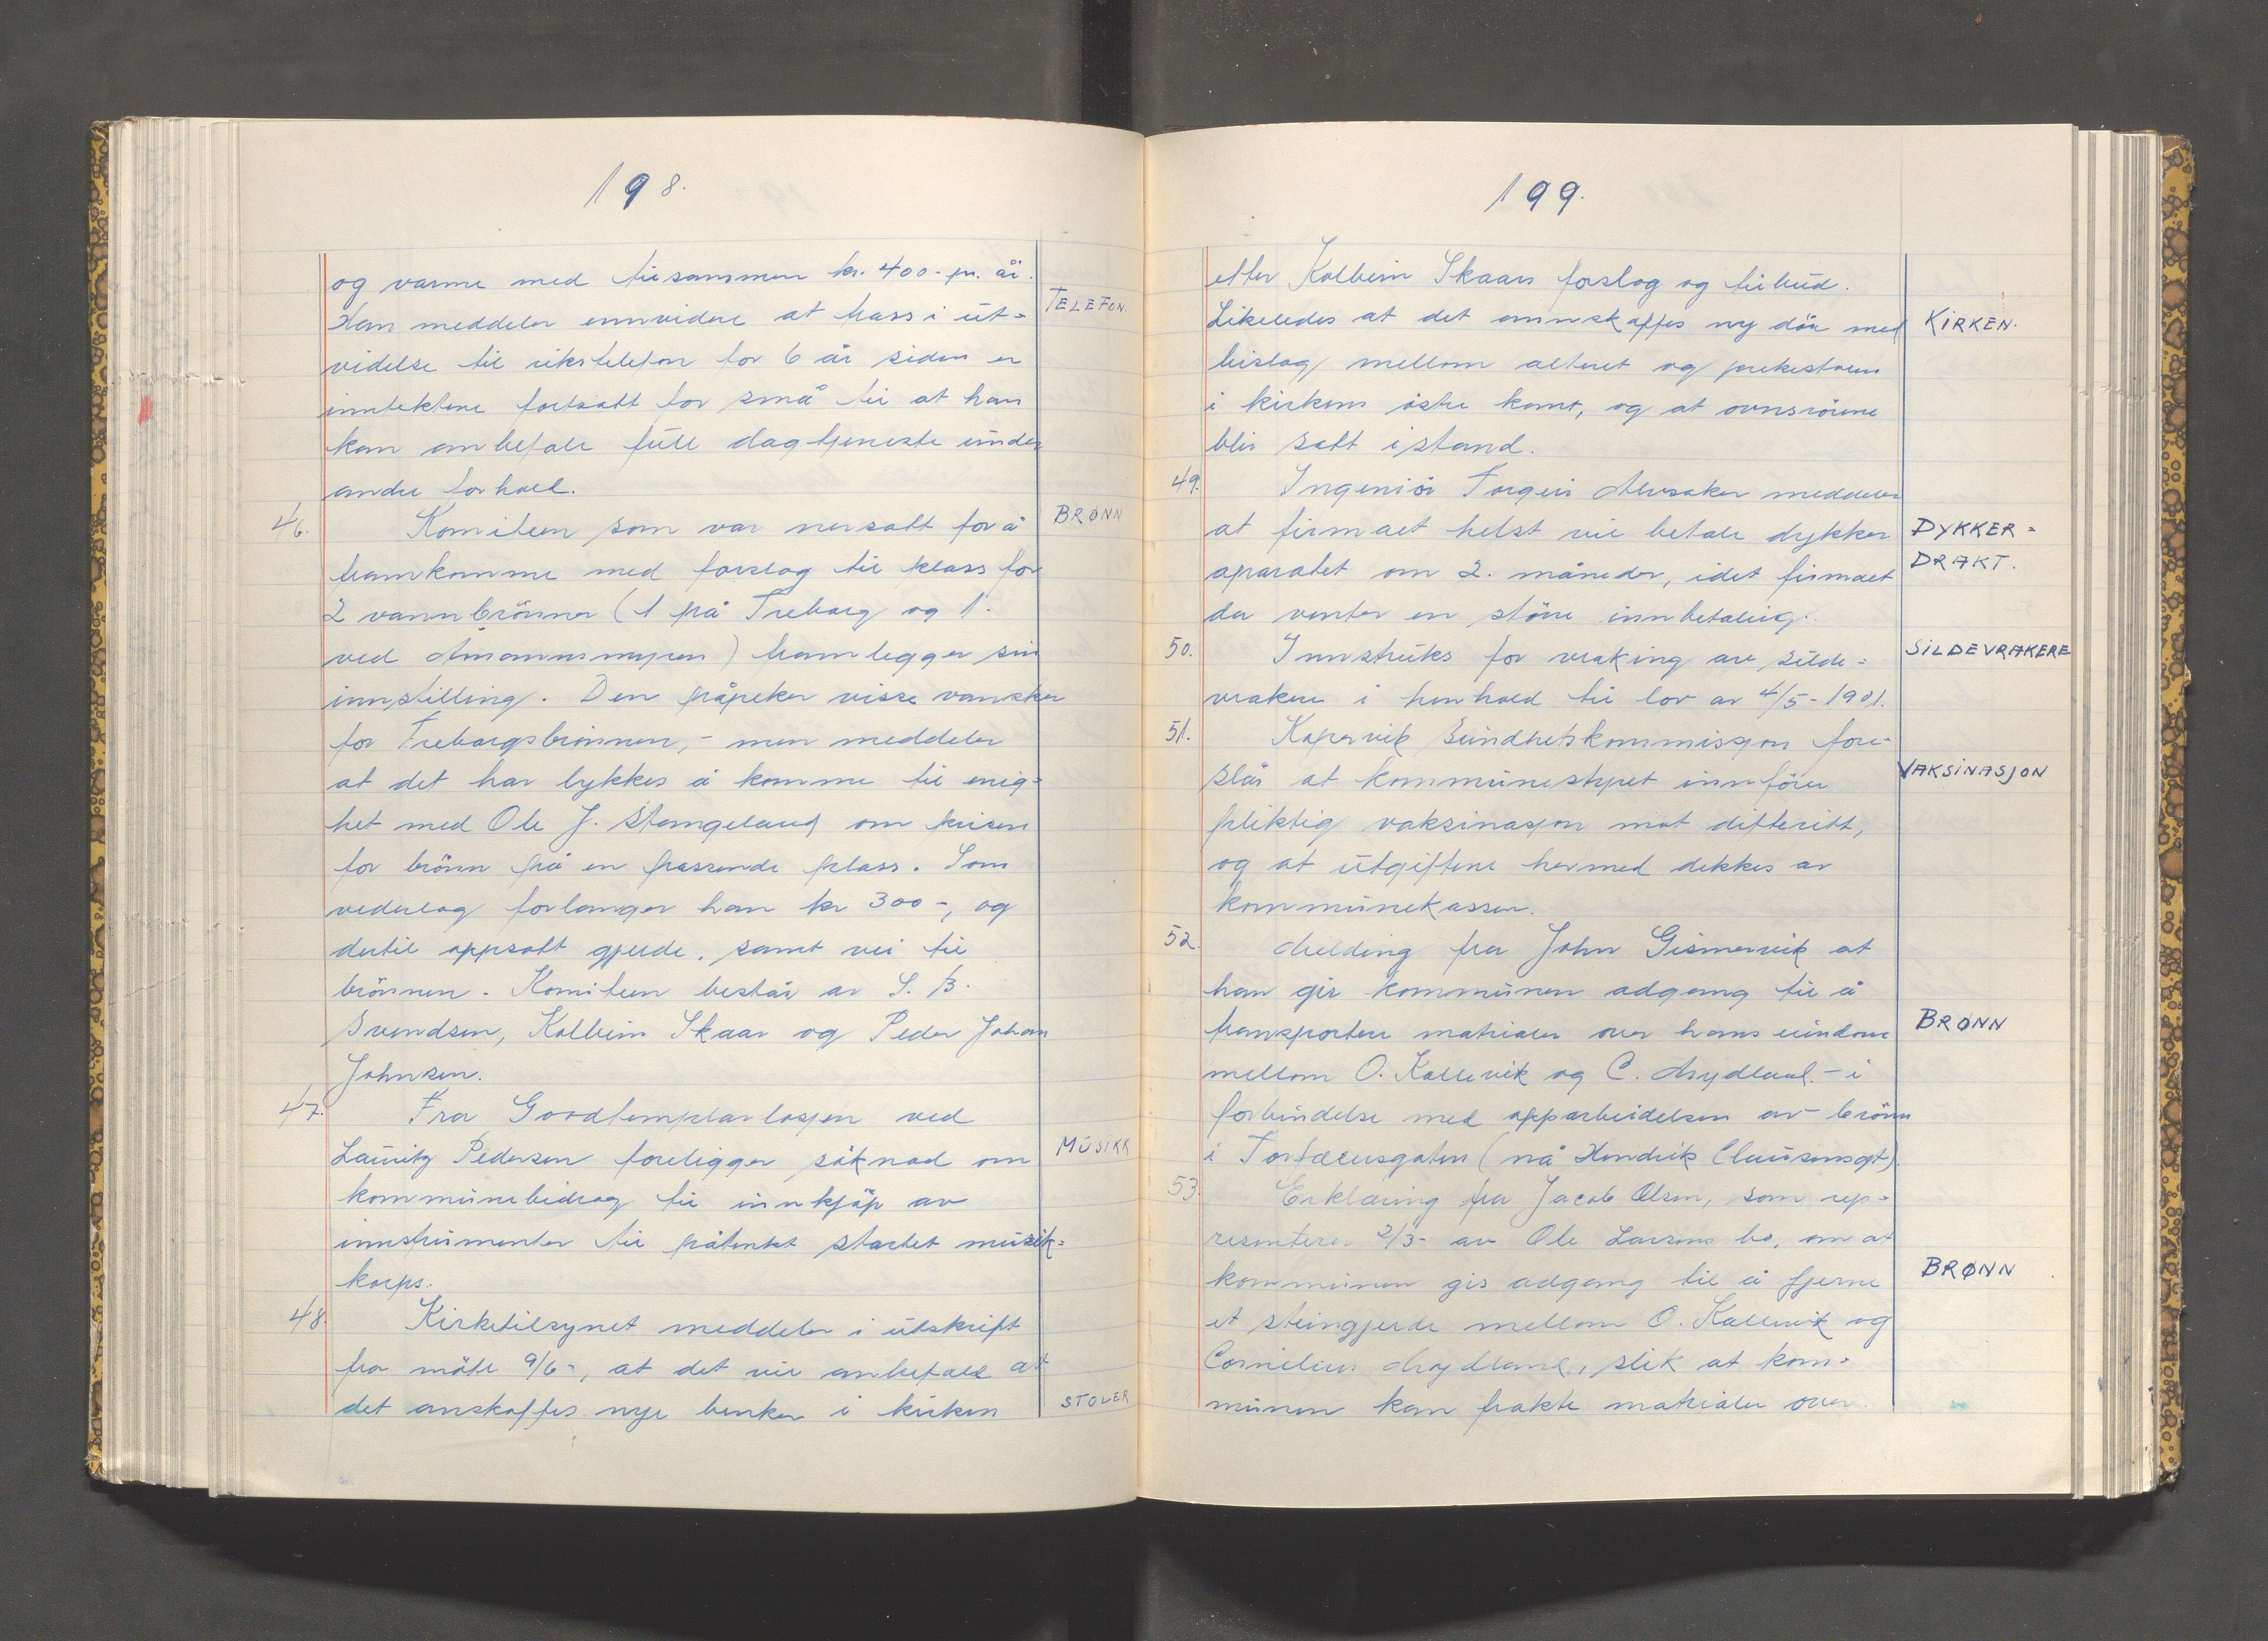 198.
og varme med tilsammen kr. 400- pr. år.
Han meddeler ennvidere at trass i ut-
TELEFON.
videlse til rikstelefon for 6 år siden er
inntektene fortsatt for små til at han
kan anbefale full dagtjeneste under
andre forhold.
46. Komiteen som var nersatt for å
BRØNN
framkomme med forslag til plass for
2 vannbrönner (1 på Treborg og 1.
ved Åmannsmyren) framlegger sin
innstilling. Den påpeker visse vansker
for Treborgsbrönnen, - men meddeler
at det har lykkes å komme til enig-
het med Ole J. Stangeland om prisen
for brönn på en passende plass. Som
vederlag forlanger han kr 300-, og
dertil oppsatt gjerde, samt vei til
brönnen. Komiteen består av S. B.
Svendsen, Kolbein Skaar og Peder Johan
Johnsen.
47. Fra Goodtemplarlosjen ved
Lauritz Pedersen foreligger söknad om
MUSIKK
kommunebidrag til innkjöp av
innstrumenter til påtenkt startet musik-
korps.
48. Kirketilsynet meddeler i utskrift
fra möte 9/6-, at det vil anbefale at
det anskaffes nye benker i kirken
STOLER
199.
etter Kolbein Skaars forslag og tilbud.
Likeledes at det annskaffes ny dör med
KIRKEN.
bislag mellom alteret og prekestolen
i kirkens östre kant, og at ovnsrörene
blir satt istand.
49. Ingeniör Torgeir Alvsaker meddeler
at firmaet helst vil betale dykker
DYKKER-
aparatet om 2. måneder, idet firmaet
DRAKT.
da venter en störe innbetaling.
50. Innstruks for vraking av silde-
SILDEVRAKERE
vrakere i henhold til lov av 4/5-1901.
51. Kopervik Sundhetskommisjon fore-
VAKSINASJON
slår at kommunestyret innförer
pliktig vaksinasjon mot difteritt,
og at utgiftene hermed dekkes av
kommunekassen.
52. Melding fra John Gismervik at
han gir kommunen adgang til å
transportere matrialer over hans eindom
BRØNN
mellom O. Kallevik og C. Mydland. - i
forbindelse med opparbeidelsen av brönn
i Torfæusgaten (nå Hendrik Clausensgt).
53. Erklæring fra Jacob Olsen, som rep-
resenterer 2/3- av Ole Larsens bo, om at
kommunen gis adgang til å fjerne
BRØNN
et steingjerde mellom O. Kallevik og
Cornelius Mydland, slik at kom-
munen kan frakte matrialer over